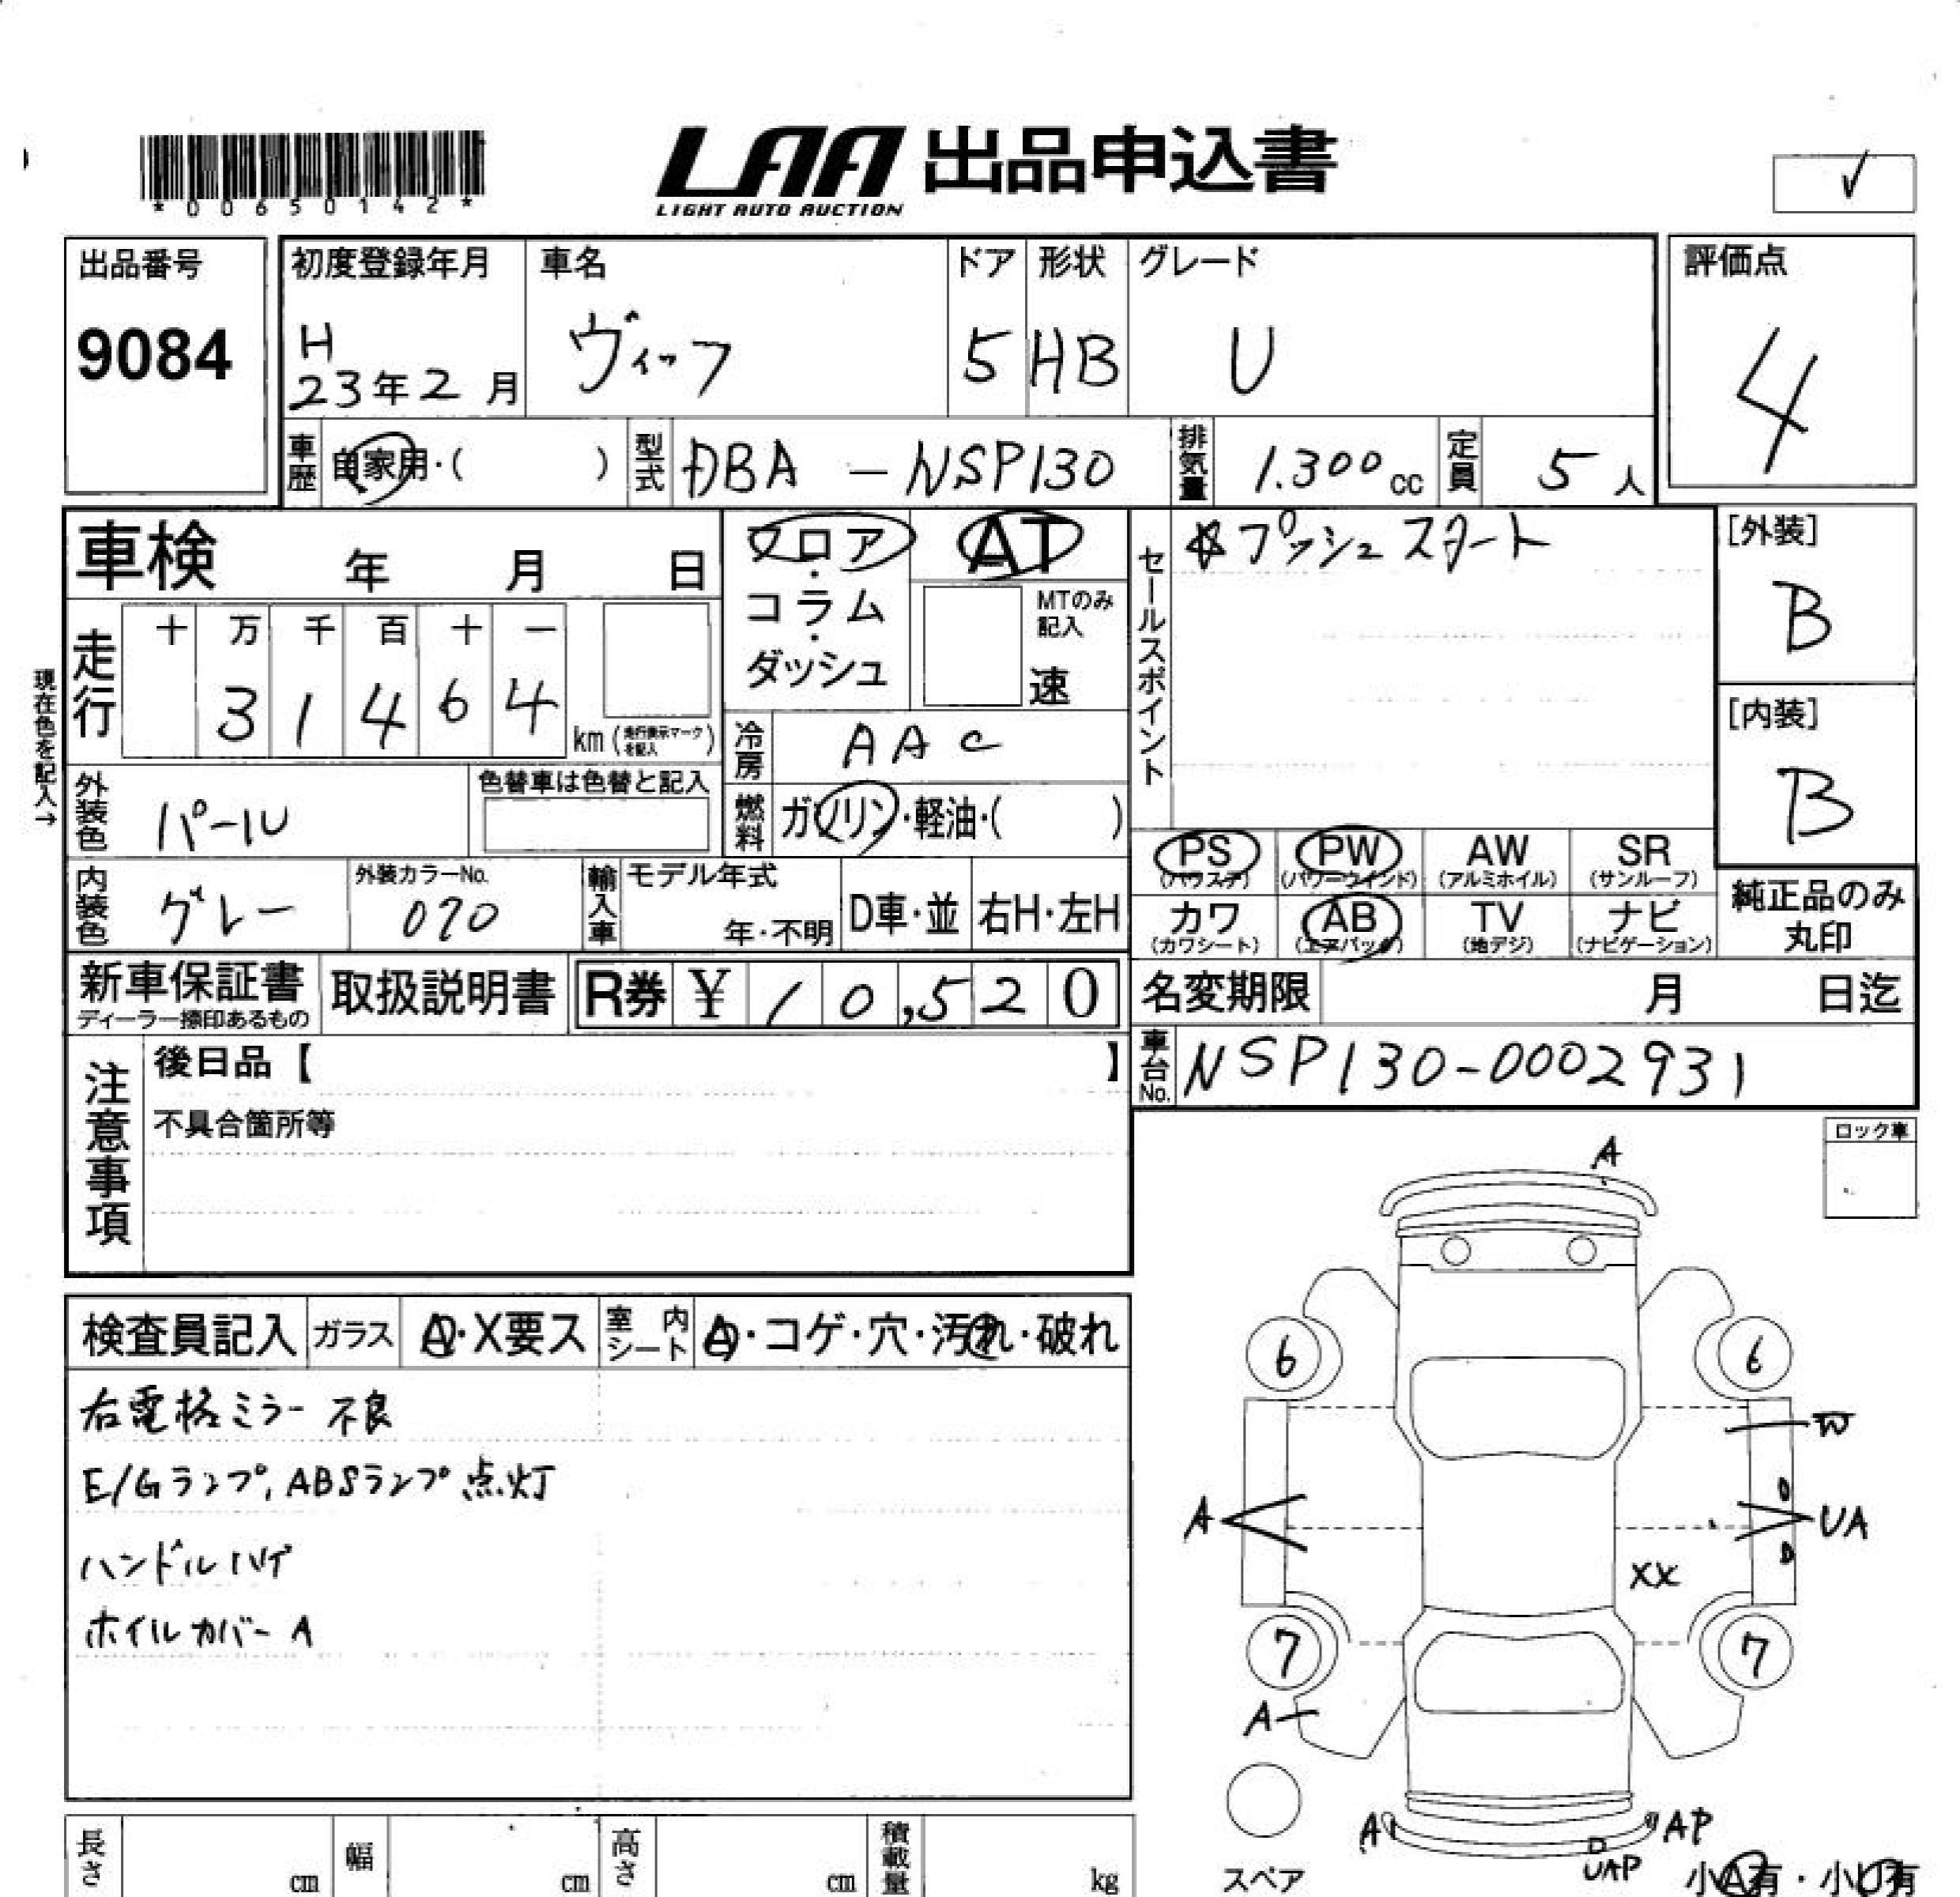 *00650142*
LAA 出品申込書
LIGHT AUTO AUCTION
✓
出品番号
9084
初度登録年月
H
23年2月
車名
ヴィッツ
ドア
5
形状
HB
グレード
U
評価点
4
車歴 自家用・( )
型式 DBA-NSP130
排気量 1.300cc
定員 5人
車検 年 月 日
フロア・コラム・ダッシュ
AT
MTのみ記入
速
セールスポイント
☆プッシュスタート
[外装]
B
[内装]
B
現在色を記入→
走行
十 万 千 百 十 一
3 1 4 6 4
km(走行表示マークを記入)
冷房 AAC
外装色 パール
色替車は色替と記入
燃料 ガソリン・軽油・( )
PS (パワステ)
PW (パワーウインド)
AW (アルミホイル)
SR (サンルーフ)
内装色 グレー
外装カラーNo.
070
輸入車
モデル年式
年・不明
D車・並
右H・左H
カワ (カワシート)
AB (エアバック)
TV (地デジ)
ナビ (ナビゲーション)
純正品のみ
丸印
新車保証書
ディーラー捺印あるもの
取扱説明書
R券 ¥ 10,520
名変期限 月 日迄
車台No. NSP130-0002931
注意事項
後日品【 】
不具合箇所等
ロック車
検査員記入
ガラス A・X要ス
室内シート A・コゲ・穴・汚れ・破れ
右電格ミラー不良
E/Gランプ,ABSランプ点灯
ハンドルハゲ
ホイルカバーA
A
6
6
W
A
UA
XX
7
7
A
A
AP
UAP
スペア
小A有・小U有
長さ cm
幅 cm
高さ cm
積載量 kg